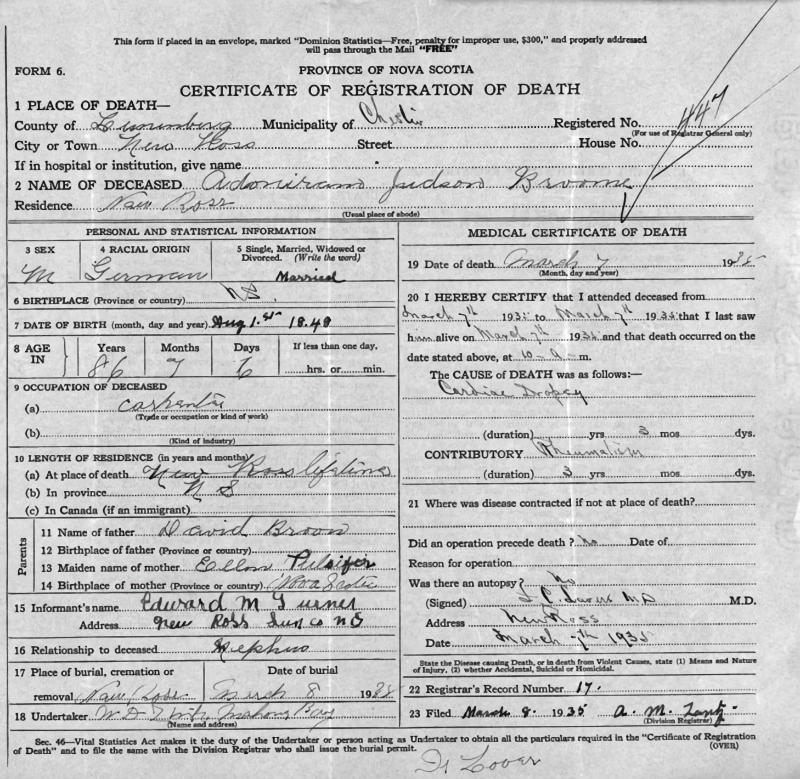 This form if placed in an envelope, marked "Dominion Statistics—Free, penalty for improper use, $300," and properly addressed
will pass through the Mail "FREE"
FORM 6.
PROVINCE OF NOVA SCOTIA
CERTIFICATE OF REGISTRATION OF DEATH
1 PLACE OF DEATH—
County of Lunenburg Municipality of Chester Registered No. 447
(For use of Registrar General only)
City or Town New Ross Street House No.
If in hospital or institution, give name
2 NAME OF DECEASED Adoniram Judson Broome
Residence New Ross
(Usual place of abode)
PERSONAL AND STATISTICAL INFORMATION
3 SEX 4 RACIAL ORIGIN 5 Single, Married, Widowed or
Divorced. (Write the word)
M German Married
6 BIRTHPLACE (Province or country) N.S.
7 DATE OF BIRTH (month, day and year) Aug 1st 1848
8 AGE IN Years Months Days If less than one day,
86 7 6 hrs. or min.
9 OCCUPATION OF DECEASED
(a) carpenter
(Trade or occupation or kind of work)
(b)
(Kind of industry)
10 LENGTH OF RESIDENCE (in years and months)
(a) At place of death New Ross lifetime
(b) In province N S
(c) In Canada (if an immigrant)
Parents
11 Name of father David Broom
12 Birthplace of father (Province or country)
13 Maiden name of mother Ellen Pulsifer
14 Birthplace of mother (Province or country) Nova Scotia
15 Informant's name Edward M Turner
Address New Ross Lun Co NS
16 Relationship to deceased Nephew
17 Place of burial, cremation or Date of burial
removal New Ross March 8 1935
18 Undertaker Mahone Bay
(Name and address)
MEDICAL CERTIFICATE OF DEATH
19 Date of death March 7 1935
(Month, day and year)
20 I HEREBY CERTIFY that I attended deceased from
March 7th 1935 to March 7th 1935 that I last saw
him alive on March 7th 1935 and that death occurred on the
date stated above, at 10 a m.
The CAUSE of DEATH was as follows:—
Cardiac Dropsy
(duration) yrs 3 mos dys.
CONTRIBUTORY Rheumatism
(duration) 3 yrs mos dys.
21 Where was disease contracted if not at place of death?
Did an operation precede death? No Date of
Reason for operation
Was there an autopsy? No
(Signed) M.D. M.D.
Address New Ross
Date March 7th 1935
State the Disease causing Death, or in death from Violent Causes, state (1) Means and Nature
of Injury, (2) whether Accidental, Suicidal or Homicidal.
22 Registrar's Record Number 17.
23 Filed March 8 1935 A. M. Lantz
(Division Registrar)
Sec. 46—Vital Statistics Act makes it the duty of the Undertaker or person acting as Undertaker to obtain all the particulars required in the "Certificate of Registration
of Death" and to file the same with the Division Registrar who shall issue the burial permit. (OVER)